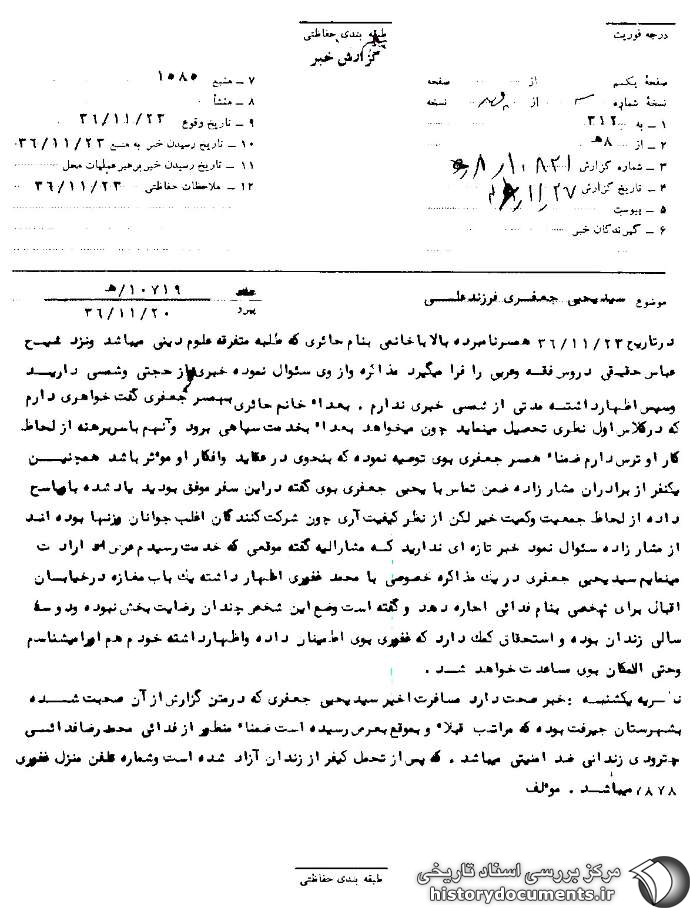 درجه فوریت
طبقه بندی حفاظتی
گزارش خبر
صفحهٔ یکم از صفحه
نسخهٔ شماره از نسخه
۱ ـ به ۳۱۲
۲ ـ از ۸ھ
۳ ـ شماره گزارش ۱۰۸۲۱/۸ھ
۴ ـ تاریخ گزارش ۳۶/۱۱/۲۷
۵ ـ پیوست
۶ ـ گیرندگان خبر
۷ ـ منبع ۱۰۸۵
۸ ـ منشأ
۹ ـ تاریخ وقوع ۳۶/۱۱/۲۳
۱۰ ـ تاریخ رسیدن خبر به منبع ۳۶/۱۱/۲۳
۱۱ ـ تاریخ رسیدن خبر برهبر عملیات محل
۱۲ ـ ملاحظات حفاظتی ۳۶/۱۱/۲۳
موضوع سیدیحیی جعفری فرزند علی
پیرو ۱۰۷۱۹/ھ
۳۶/۱۱/۲۰
در تاریخ ۳۶/۱۱/۲۳ همسر نامبرده بالا با خانمی بنام حائری که طلبه متفرقه علوم دینی میباشد ونزد شیخ
عباس حقیقی دروس فقه وعربی را فرا میگیرد مذاکره واز وی سئوال نموده خبری از حجتی وشمسی دارید
وسپس اظهارداشته مدتی از شمسی خبری ندارم . بعداً خانم حائری بهمسر جعفری گفت خواهری دارم
که درکلاس اول نظری تحصیل مینماید چون میخواهد بعداً بخدمت سپاهی برود وآنهم باسربرهنه از لحاظ
کار او ترس دارم ضمناً همسر جعفری بوی توصیه نموده که بنحوی در عقاید وافکار او موثر باشد همچنین
یکنفر از برادران مشارزاده ضمن تماس با یحیی جعفری بوی گفته دراین سفر موفق بودید یادشده باو پاسخ
داده از لحاظ جمعیت وکمیت خیر لکن از نظر کیفیت آری چون شرکت کنندگان اغلب جوانان وزنها بوده اند
از مشارزاده سئوال نمود خبر تازه ای ندارید که مشارالیه گفته موقعی که خدمت رسیدم عرض ارادت
مینمایم سیدیحیی جعفری در یک مذاکره خصوصی با محمد غفوری اظهار داشته یک باب مغازه درخیابان
اقبال برای شخصی بنام فدائی اجاره دهد وگفته است وضع این شخص چندان رضایت بخش نبوده ودوسهٔ
سالی زندان بوده و استحقاق کمک دارد که غفوری بوی اطمینان داده واظهارداشته خودم هم اورا میشناسم
وحتی الامکان بوی مساعدت خواهد شد .
نظریه یکشنبه : خبر صحت دارد مسافرت اخیر سیدیحیی جعفری که درمتن گزارش از آن صحبت شده
بشهرستان جیرفت بوده که مراتب قبلاً و بموقع بعرض رسیده است ضمناً منظور از فدائی محمدرضا فدائی
چترودی زندانی ضد امنیتی میباشد . که پس از تحمل کیفر از زندان آزاد شده است وشماره تلفن منزل غفوری
۷۸۷۸ میباشد . مولف
طبقه بندی حفاظتی
مرکز بررسی اسناد تاریخی
historydocuments.ir